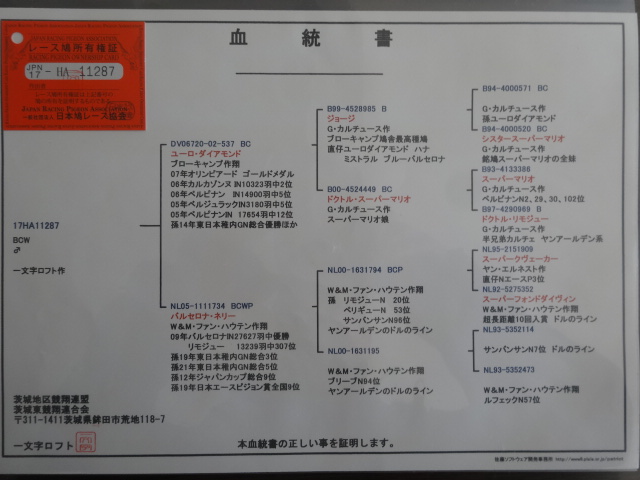 血統書
レース鳩所有権証
JPN
17 - HA 11287
JAPAN RACING PIGEON ASSOCIATION
日本鳩レース協会
17HA11287
BCW
♂
一文字ロフト作
DV06720-02-537 BC
ユーロ・ダイアモンド
ブローキャンプ作翔
07年オリンピアード ゴールドメダル
06年カルカゾンヌ IN10323羽中2位
06年ペルピナン IN14900羽中5位
05年ベルジュラックIN3180羽中5位
05年ペルピナンIN 17654羽中12位
孫14年東日本稚内GN総合優勝ほか
NL05-1111734 BCWP
バルセロナ・ネリー
W&M・ファン・ハウテン作翔
09年バルセロナIN27627羽中優勝
リモジュー 13239羽中307位
孫19年東日本稚内GN総合3位
孫21年東日本稚内GN総合5位
孫12年ジャパンカップ総合9位
孫19年日本エースピジョン賞全国9位
B99-4528985 B
ジョージ
G・カルチュース作
ブローキャンプ鳩舎最高種鳩
直仔ユーロダイアモンド ハナ
ミストラル ブルーバルセロナ
B00-4524449 BC
ドクトル・スーパーマリオ
G・カルチュース作
スーパーマリオ娘
NL00-1631794 BCP
W&M・ファン・ハウテン作翔
孫 リモジューN 20位
ペリギューN 53位
サンバンサンN96位
ヤンアールデンのドルのライン
NL00-1631195
W&M・ファン・ハウテン作翔
ブリーブN84位
ヤンアールデンのドルのライン
B94-4000571 BC
G・カルチュース作
孫ユーロダイアモンド
B94-4000520 BC
シスタースーパーマリオ
G・カルチュース作
銘鳩スーパーマリオの全妹
B93-4133386
スーパーマリオ
G・カルチュース作
ペルピナンN2、29、30、102位
B97-4290969 B
ドクトル・リモジュー
G・カルチュース作
半兄弟カルチェ ヤンアールデン系
NL95-2151909
スーパークヴェーカー
ヤン・エルネスト作
直仔NエースP3位
NL92-5275352
スーパーフォンドダイヴィン
W&M・ファン・ハウテン作翔
超長距離10回入賞 ドルのライン
NL93-5352114
サンバンサンN7位 ドルのライン
NL93-5352473
W&M・ファン・ハウテン作翔
ルフェックN57位
茨城地区競翔連盟
茨城東競翔連合会
〒311-1411茨城県鉾田市荒地118-7
一文字ロフト
本血統書の正しい事を証明します。